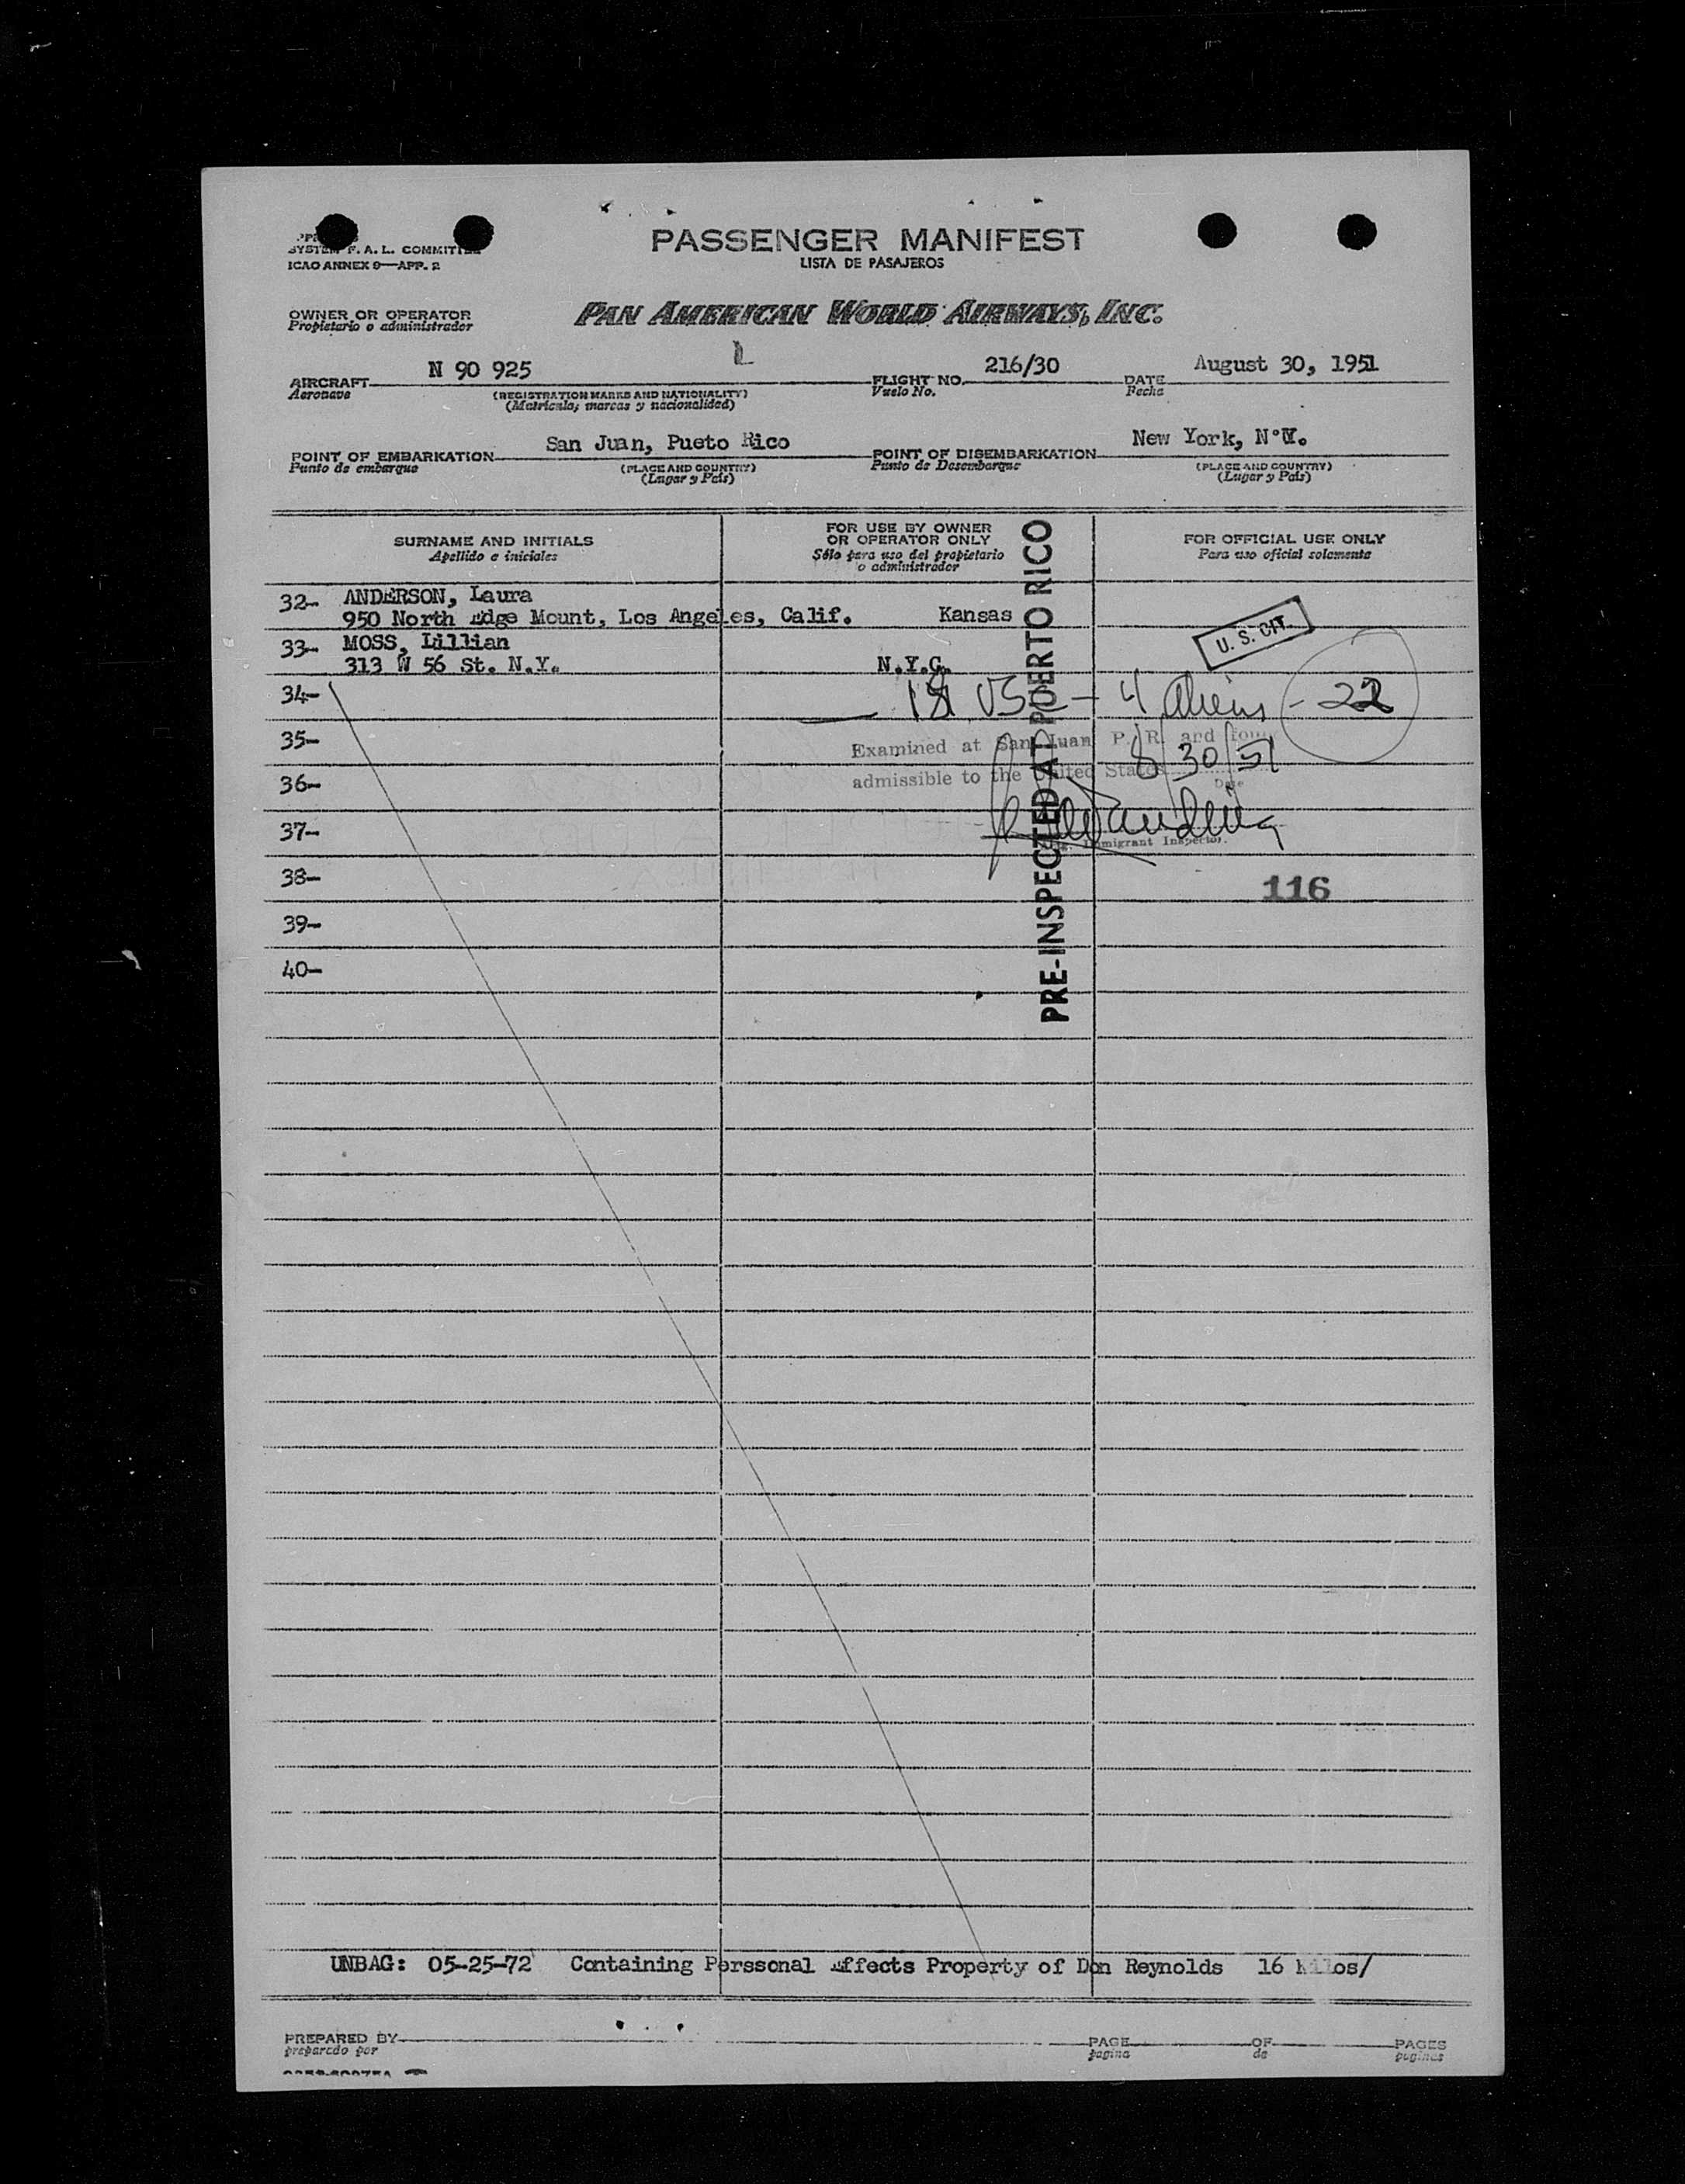 SYSTEM F. A. L. COMMITTEE
ICAO ANNEX 9—APP. 2
PASSENGER MANIFEST
LISTA DE PASAJEROS
OWNER OR OPERATOR
Propietario o administrador
PAN AMERICAN WORLD AIRWAYS, INC.
AIRCRAFT N 90 925 FLIGHT NO. 216/30 DATE August 30, 1951
Aeronave (REGISTRATION MARKS AND NATIONALITY) Vuelo No. Fecha
(Matricula, marcas y nacionalidad)
POINT OF EMBARKATION San Juan, Pueto Rico POINT OF DISEMBARKATION New York, N.Y.
Punto de embarque (PLACE AND COUNTRY) Punto de Desembarque (PLACE AND COUNTRY)
(Lugar y País) (Lugar y País)
SURNAME AND INITIALS
Apellido e iniciales
FOR USE BY OWNER
OR OPERATOR ONLY
Sólo para uso del propietario
o administrador
FOR OFFICIAL USE ONLY
Para uso oficial solamente
32- ANDERSON, Laura
950 North Edge Mount, Los Angeles, Calif. Kansas
33- MOSS, Lillian
313 W 56 St. N.Y. N.Y.C.
U. S. CIT.
34- 18 USC - 4 aliens - 22
35- Examined at San Juan, P. R. and found
8/30/51
36- admissible to the United States
Date
37-
Immigrant Inspector.
38- 116
39-
40-
PRE-INSPECTED AT PUERTO RICO
UNBAG: 05-25-72 Containing Perssonal Effects Property of Don Reynolds 16 kilos/
PREPARED BY PAGE OF PAGES
preparado por pagina de paginas